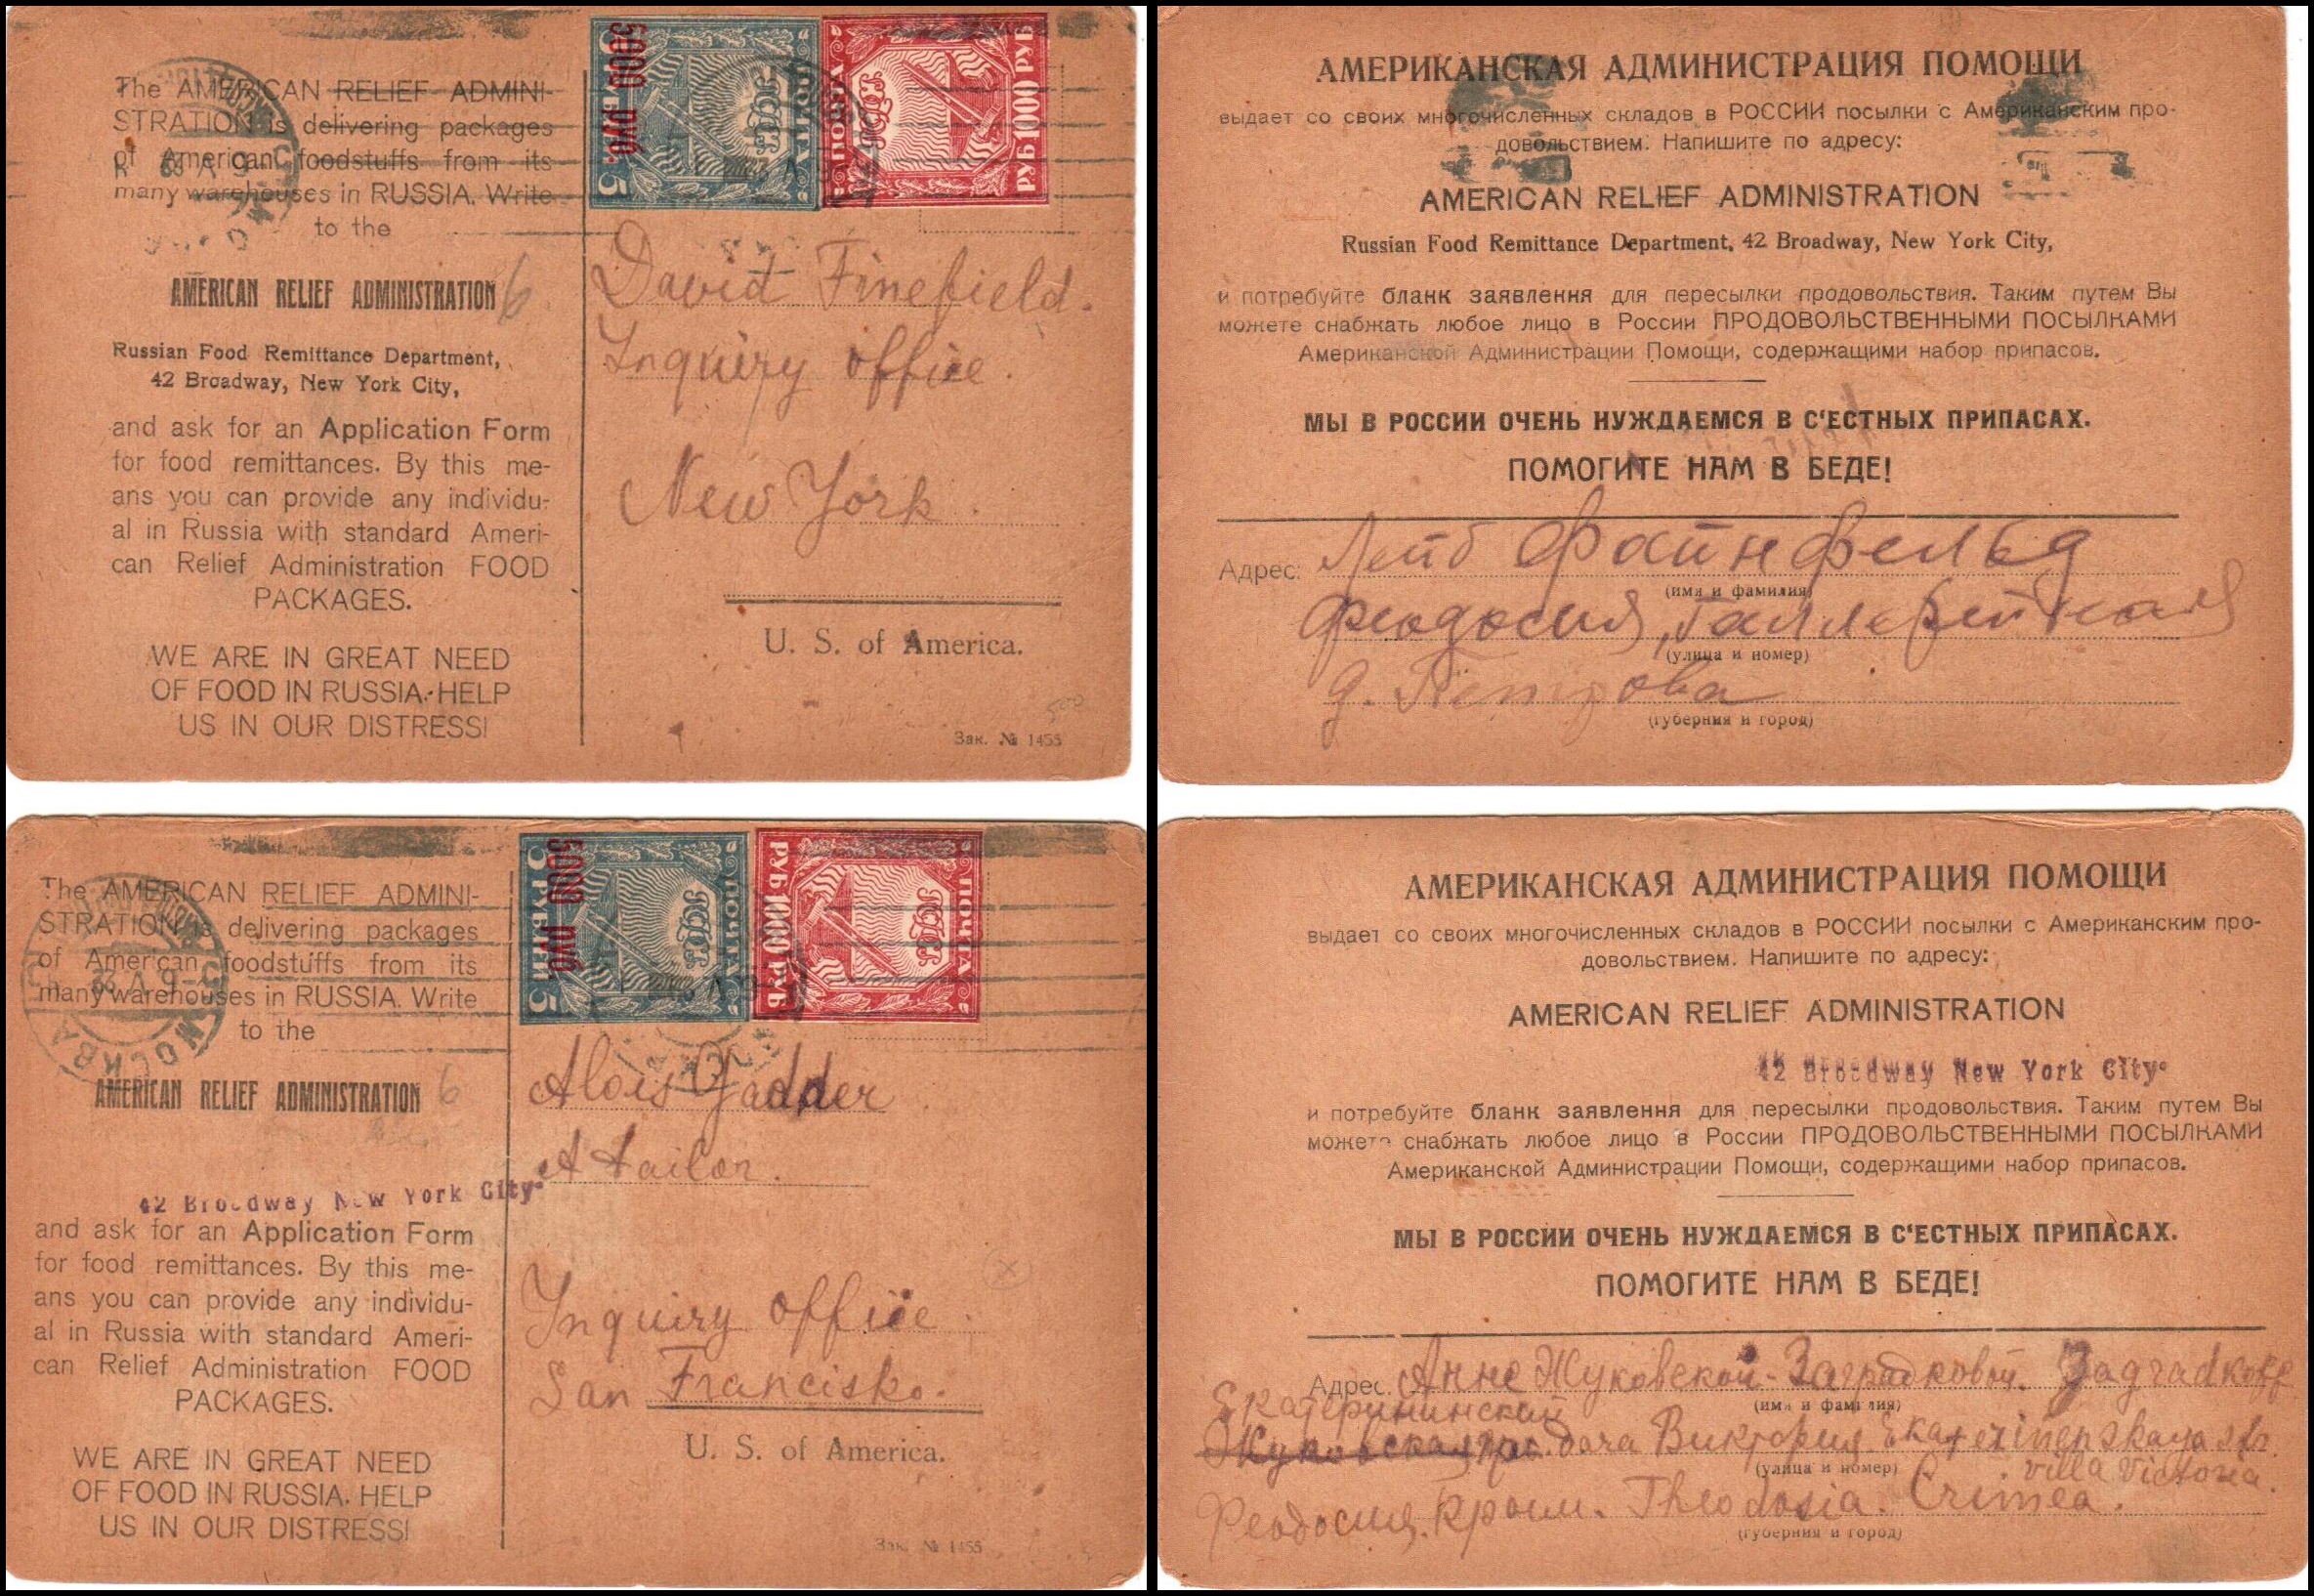 The AMERICAN RELIEF ADMINI-
STRATION is delivering packages
of American foodstuffs from its
many warehouses in RUSSIA. Write
to the
AMERICAN RELIEF ADMINISTRATION
6
Russian Food Remittance Department,
42 Broadway, New York City,
and ask for an Application Form
for food remittances. By this me-
ans you can provide any individu-
al in Russia with standard Ameri-
can Relief Administration FOOD
PACKAGES.
WE ARE IN GREAT NEED
OF FOOD IN RUSSIA. HELP
US IN OUR DISTRESS!
5000 РУБ.
5 РУБЛЕЙ 5
ПОЧТА
ПОЧТА
РУБ 1000 РУБ
David Finefield.
Inquiry office.
New York.
U. S. of America.
Зак. № 1455
АМЕРИКАНСКАЯ АДМИНИСТРАЦИЯ ПОМОЩИ
выдает со своих многочисленных складов в РОССИИ посылки с Американским про-
довольствием. Напишите по адресу:
AMERICAN RELIEF ADMINISTRATION
Russian Food Remittance Department, 42 Broadway, New York City,
и потребуйте бланк заявления для пересылки продовольствия. Таким путем Вы
можете снабжать любое лицо в России ПРОДОВОЛЬСТВЕННЫМИ ПОСЫЛКАМИ
Американской Администрации Помощи, содержащими набор припасов.
МЫ В РОССИИ ОЧЕНЬ НУЖДАЕМСЯ В С'ЕСТНЫХ ПРИПАСАХ.
ПОМОГИТЕ НАМ В БЕДЕ!
Адрес: Лейб Файнфельд
(имя и фамилия)
Феодосия, Галлерейная
(улица и номер)
д. Петрова
(губерния и город)
The AMERICAN RELIEF ADMINI-
STRATION is delivering packages
of American foodstuffs from its
many warehouses in RUSSIA. Write
to the
МОСКВА
AMERICAN RELIEF ADMINISTRATION
6
42 Broadway New York City
and ask for an Application Form
for food remittances. By this me-
ans you can provide any individu-
al in Russia with standard Ameri-
can Relief Administration FOOD
PACKAGES.
WE ARE IN GREAT NEED
OF FOOD IN RUSSIA. HELP
US IN OUR DISTRESS!
5000 РУБ.
5 РУБЛЕЙ 5
ПОЧТА
ПОЧТА
РУБ 1000 РУБ
Alois Yadder
A tailor.
Inquiry office.
San Francisko.
U. S. of America.
Зак. № 1455
АМЕРИКАНСКАЯ АДМИНИСТРАЦИЯ ПОМОЩИ
выдает со своих многочисленных складов в РОССИИ посылки с Американским про-
довольствием. Напишите по адресу:
AMERICAN RELIEF ADMINISTRATION
42 Broadway New York City
и потребуйте бланк заявления для пересылки продовольствия. Таким путем Вы
можете снабжать любое лицо в России ПРОДОВОЛЬСТВЕННЫМИ ПОСЫЛКАМИ
Американской Администрации Помощи, содержащими набор припасов.
МЫ В РОССИИ ОЧЕНЬ НУЖДАЕМСЯ В С'ЕСТНЫХ ПРИПАСАХ.
ПОМОГИТЕ НАМ В БЕДЕ!
Адрес. Анне Жуковской-Заградковой. Zagradkoff
(имя и фамилия)
Екатерининская
дача Виктория. Ekaterinenskaya str.
(улица и номер) villa Victoria.
Феодосия. Крым. Theodosia. Crimea.
(губерния и город)